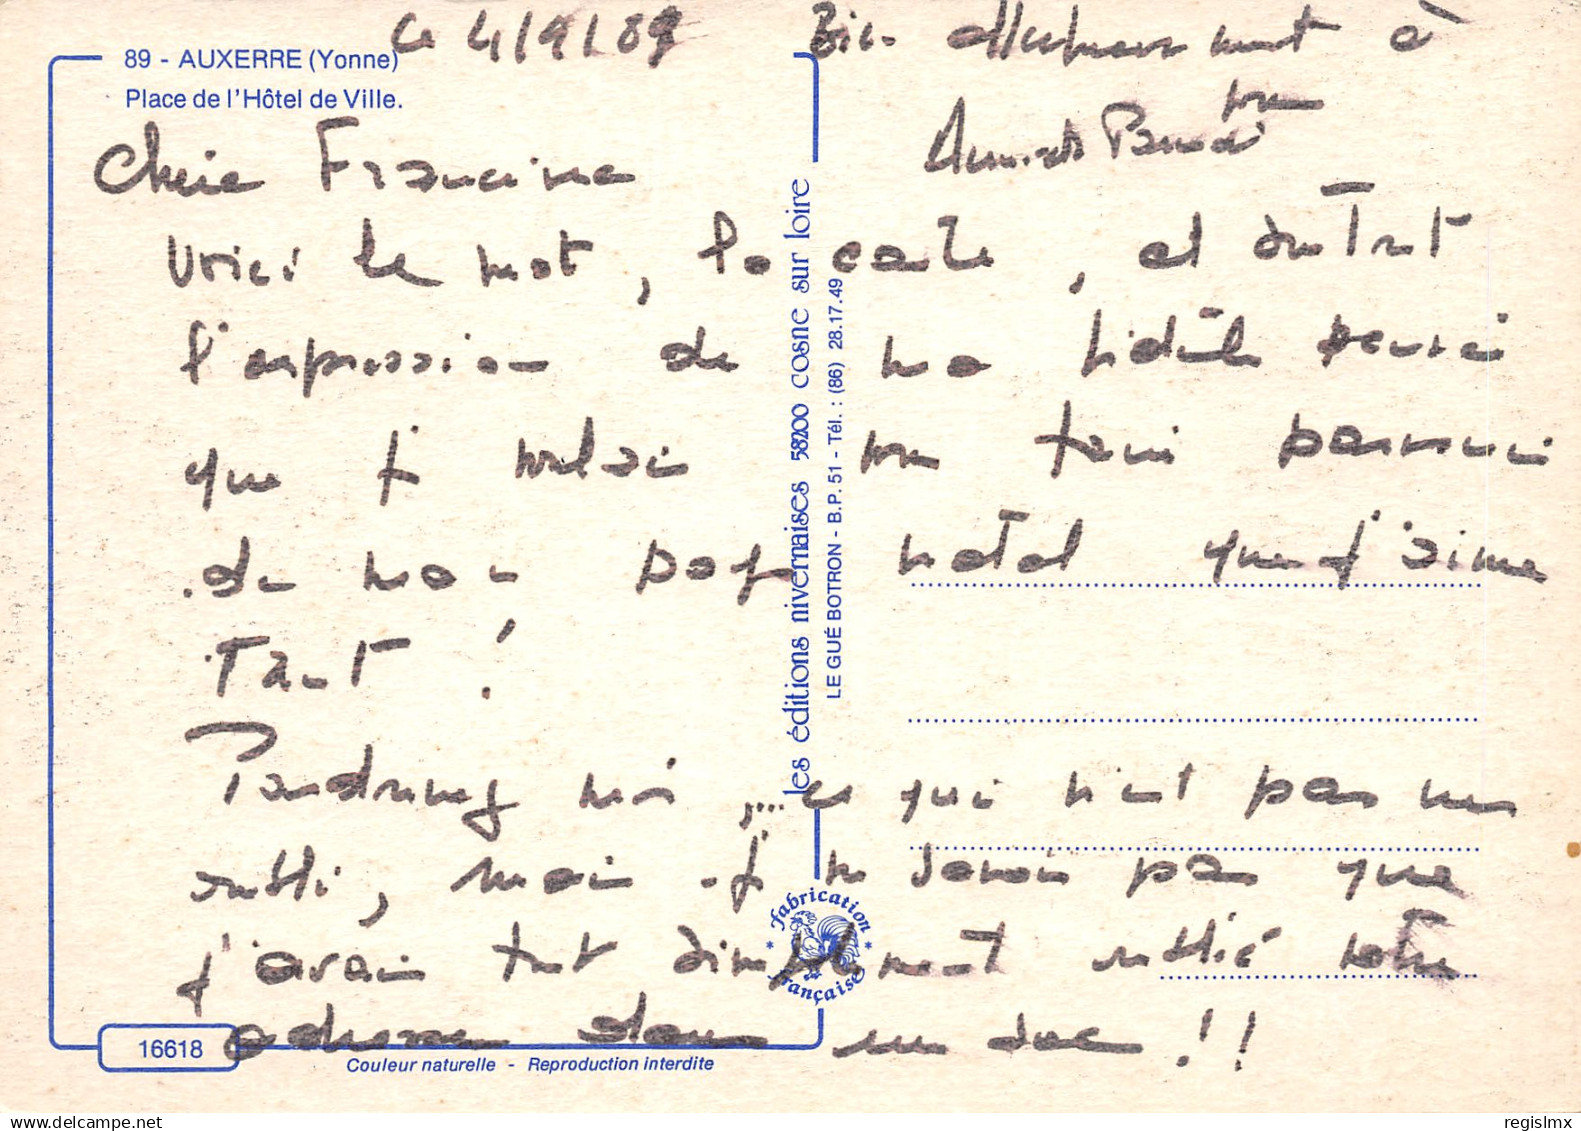 89 - AUXERRE (Yonne)
Place de l'Hôtel de Ville.
Le 4/9/89
Chérie Francine
Voici le mot, la carte, et surtout
l'expression de ma fidèle pensée
que je voulais vous faire parvenir
de mon pays natal que j'aime
Tant !
Pardonnez moi,... ce qui n'est pas un
oubli, mais je ne savais pas que
j'avais tout simplement oublié votre
adresse dans un sac !!
Bien affectueusement à
vous
les éditions nivernaises 58200 cosne sur loire
LE GUÉ BOTRON - B.P. 51 - Tél. : (86) 28.17.49
fabrication française
16618
Couleur naturelle - Reproduction interdite
regislmx